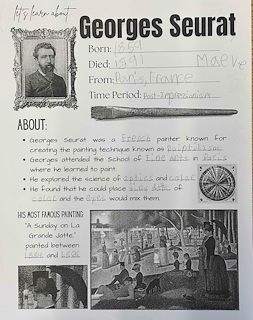 let's learn about
Georges Seurat
Born: 1859
Died: 1891 Maeve
From: Paris, France
Time Period: Post-Impressionism
ABOUT:
Georges Seurat was a French painter known for
creating the painting technique known as Pointillism
Georges attended the School of Fine Arts in Paris
where he learned to paint.
He explored the science of optics and color
He found that he could place tiny dots of
color and the eyes would mix them.
HIS MOST FAMOUS PAINTING
"A Sunday on La
Grande Jatte,"
painted between
1884 and 1886